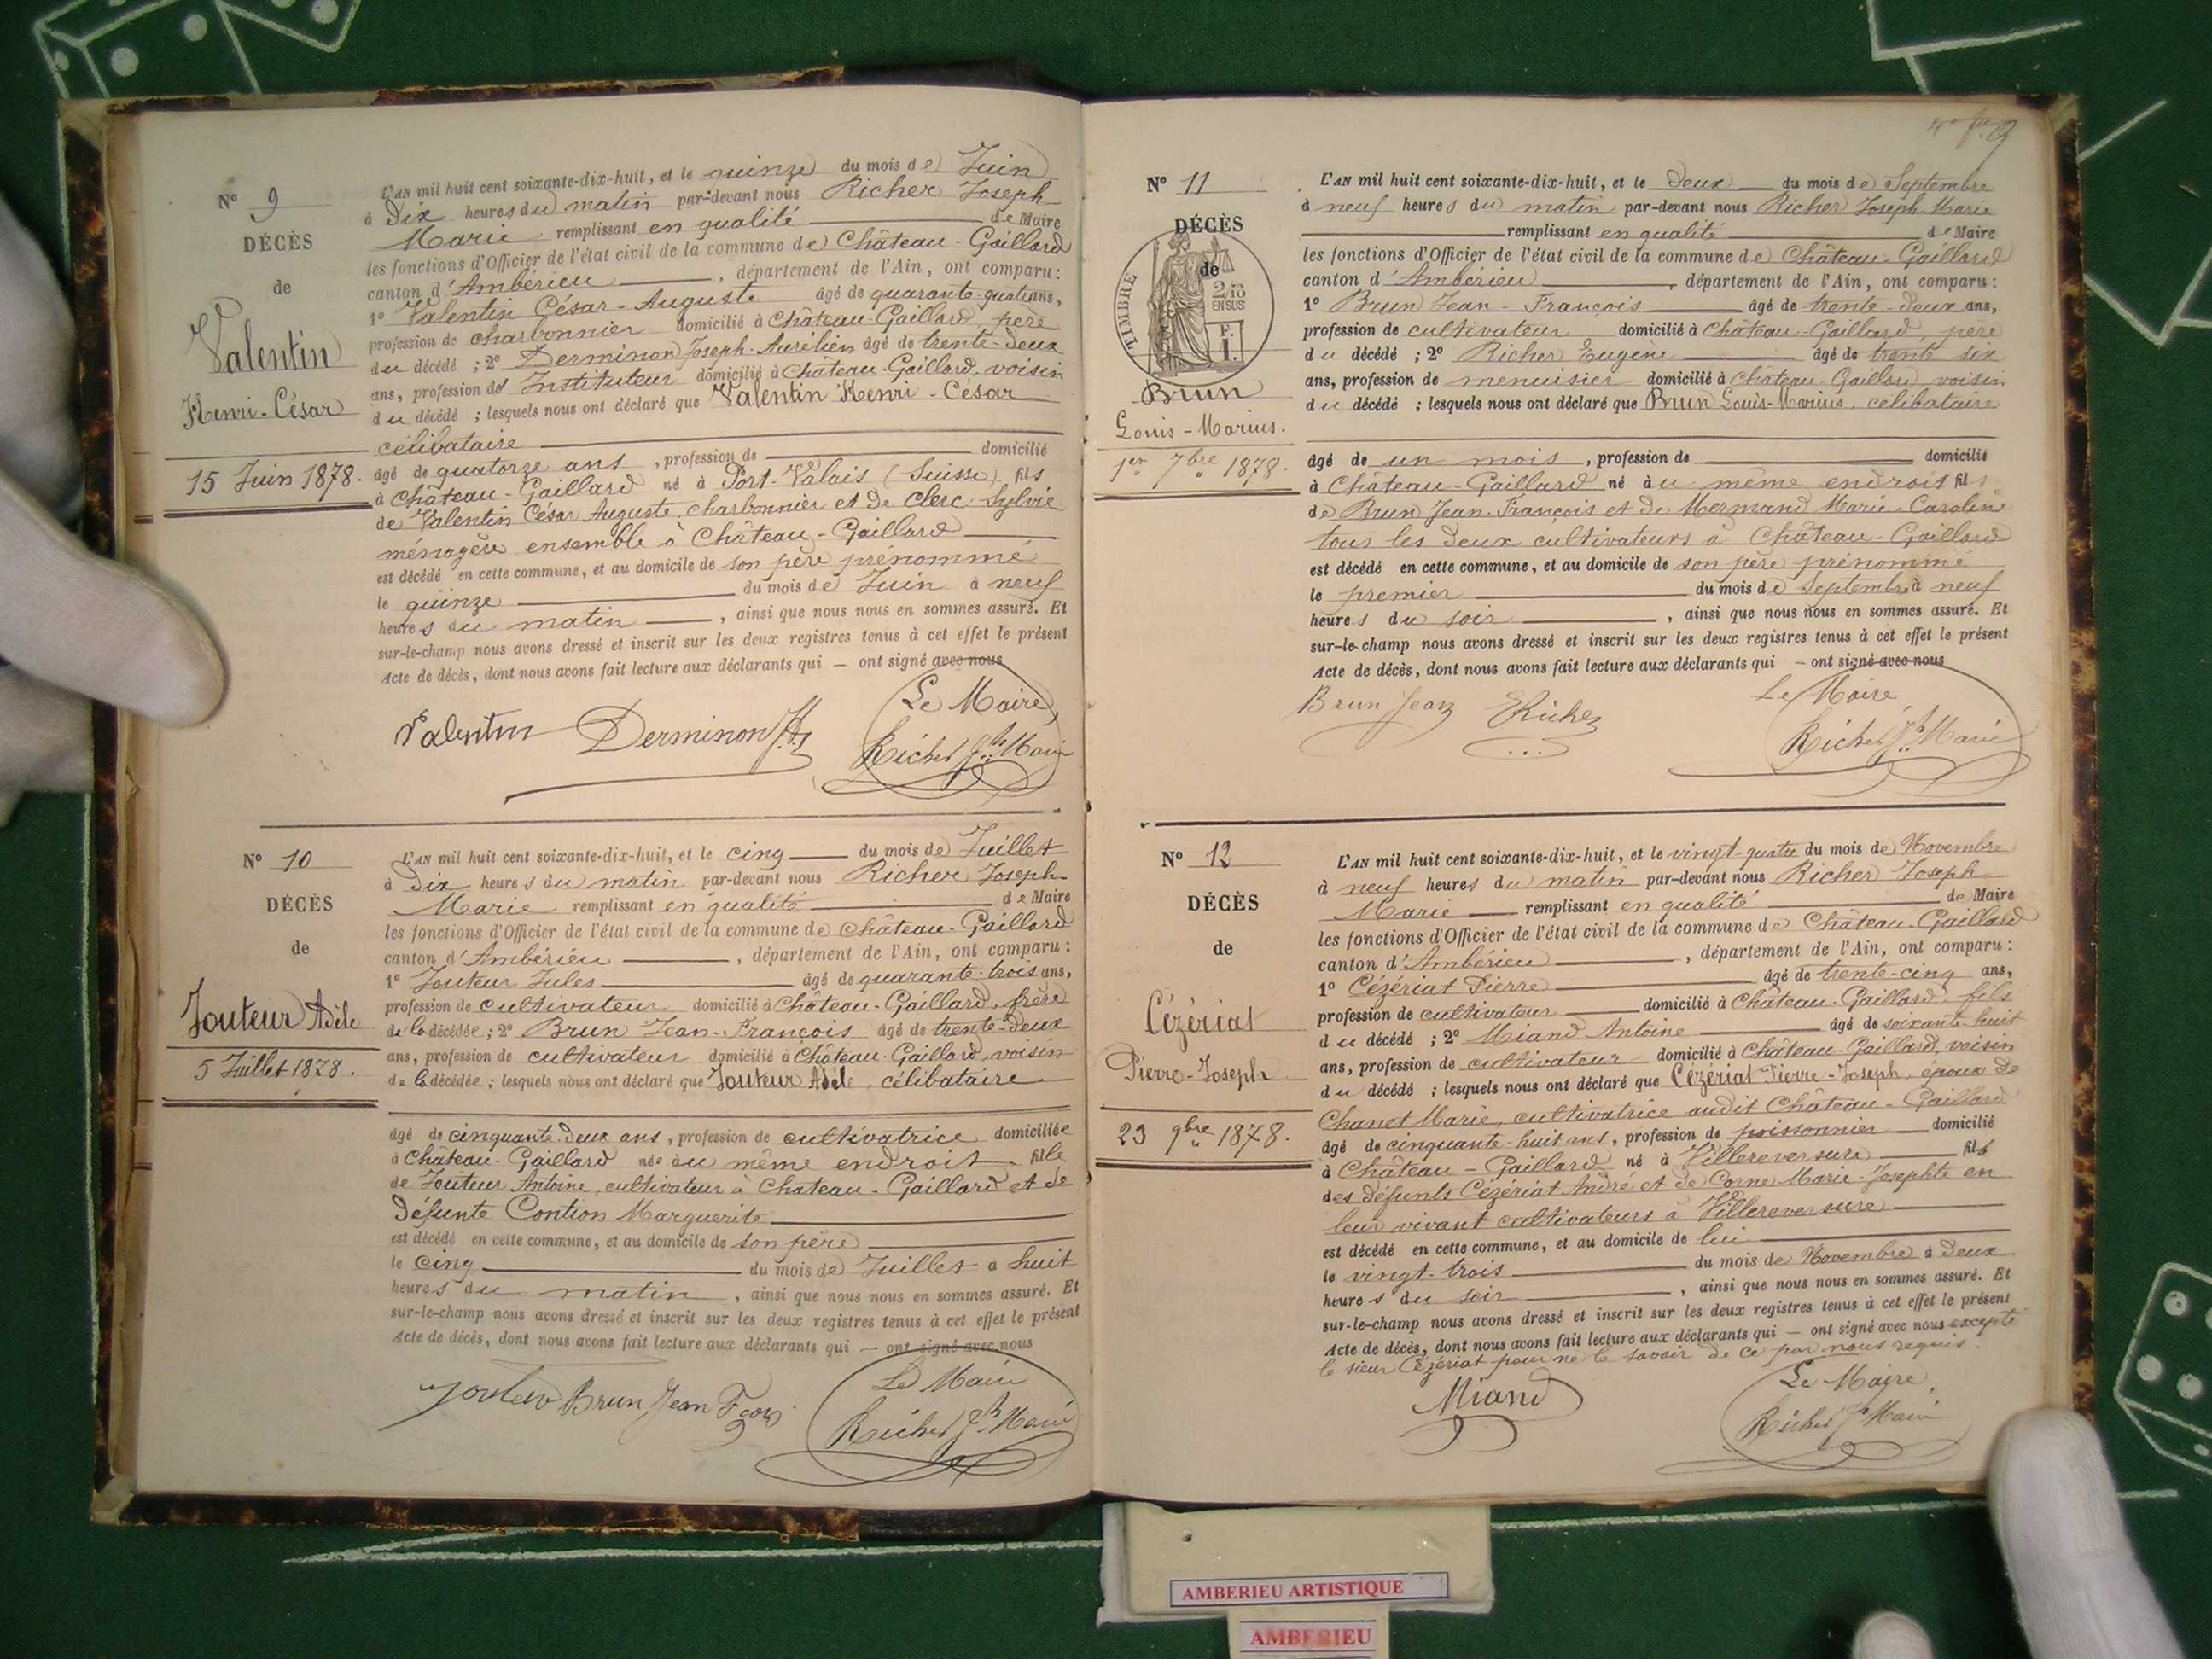 N° 9
DÉCÈS
de
Valentin
Henri-César
15 Juin 1878.
L'AN mil huit cent soixante-dix-huit, et le quinze du mois de Juin
à Dix heures du matin par-devant nous Richer Joseph-
Marie remplissant en qualité de Maire
les fonctions d'Officier de l'état civil de la commune de Château-Gaillard
canton d'Ambérieu, département de l'Ain, ont comparu :
1° Valentin César-Auguste âgé de quarante-quatre ans,
profession de charbonnier domicilié à Château-Gaillard, père
du décédé ; 2° Derminon Joseph-Aurélien âgé de trente-deux
ans, profession de Instituteur domicilié à Château-Gaillard, voisin
du décédé ; lesquels nous ont déclaré que Valentin Henri-César
célibataire
âgé de quatorze ans, profession de domicilié
à Château-Gaillard né à Port-Valais (Suisse) fils
de Valentin César Auguste, charbonnier et de Clerc Sylvie
ménagère ensemble à Château-Gaillard
est décédé en cette commune, et au domicile de son père prénommé
le quinze du mois de Juin à neuf
heures du matin, ainsi que nous nous en sommes assuré. Et
sur-le-champ nous avons dressé et inscrit sur les deux registres tenus à cet effet le présent
Acte de décès, dont nous avons fait lecture aux déclarants qui — ont signé avec nous
Le Maire,
Valentin Derminon J.A. Richer Jh Marie
N° 10
DÉCÈS
de
Jouteur Adèle
5 Juillet 1878.
L'AN mil huit cent soixante-dix-huit, et le cinq du mois de Juillet
à Dix heures du matin par-devant nous Richer Joseph-
Marie remplissant en qualité de Maire
les fonctions d'Officier de l'état civil de la commune de Château-Gaillard
canton d'Ambérieu, département de l'Ain, ont comparu :
1° Jouteur Jules âgé de quarante-trois ans,
profession de cultivateur domicilié à Château-Gaillard, frère
de la décédée ; 2° Brun Jean-François âgé de trente-deux
ans, profession de cultivateur domicilié à Château-Gaillard, voisin
de la décédée ; lesquels nous ont déclaré que Jouteur Adèle, célibataire
âgé de cinquante-deux ans, profession de cultivatrice domiciliée
à Château-Gaillard née au même endroit fille
de Jouteur Antoine, cultivateur à Chateau-Gaillard et de
défunte Contion Marguerite
est décédé en cette commune, et au domicile de son père
le cinq du mois de Juillet à huit
heures du matin, ainsi que nous nous en sommes assuré. Et
sur-le-champ nous avons dressé et inscrit sur les deux registres tenus à cet effet le présent
Acte de décès, dont nous avons fait lecture aux déclarants qui — ont signé avec nous
Le Maire
Brun Jean Richer Jh Marie
9
N° 11
DÉCÈS
de
TIMBRE
2/10
EN SUS
F.
1.
Brun
Louis-Marius.
1er 7bre 1878.
L'AN mil huit cent soixante-dix-huit, et le Deux du mois de Septembre
à neuf heures du matin par-devant nous Richer Joseph-Marie
remplissant en qualité de Maire
les fonctions d'Officier de l'état civil de la commune de Château-Gaillard
canton d'Ambérieu, département de l'Ain, ont comparu :
1° Brun Jean-François âgé de trente-deux ans,
profession de cultivateur domicilié à Château-Gaillard, père
du décédé ; 2° Richer Eugène âgé de trente six
ans, profession de menuisier domicilié à Château-Gaillard, voisin
du décédé ; lesquels nous ont déclaré que Brun Louis-Marius, célibataire
âgé de un mois, profession de domicilié
à Château-Gaillard né au même endroit fils
de Brun Jean-François et de Mermand Marie-Caroline
tous les deux cultivateurs à Château-Gaillard
est décédé en cette commune, et au domicile de son père prénommé
le premier du mois de Septembre à neuf
heures du soir, ainsi que nous nous en sommes assuré. Et
sur-le-champ nous avons dressé et inscrit sur les deux registres tenus à cet effet le présent
Acte de décès, dont nous avons fait lecture aux déclarants qui — ont signé avec nous
Le Maire
Brun Jean E Richer Richer Jh Marie
N° 12
DÉCÈS
de
Cézériat
Pierre-Joseph
23 9bre 1878.
L'AN mil huit cent soixante-dix-huit, et le vingt-quatre du mois de Novembre
à neuf heures du matin par-devant nous Richer Joseph
Marie remplissant en qualité de Maire
les fonctions d'Officier de l'état civil de la commune de Château-Gaillard
canton d'Ambérieu, département de l'Ain, ont comparu :
1° Cézériat Pierre âgé de trente-cinq ans,
profession de cultivateur domicilié à Château-Gaillard, fils
du décédé ; 2° Miand Antoine âgé de soixante-huit
ans, profession de cultivateur domicilié à Château-Gaillard, voisin
du décédé ; lesquels nous ont déclaré que Cézériat Pierre-Joseph, époux de
Chanet Marie, cultivatrice audit Château-Gaillard
âgé de cinquante-huit ans, profession de poissonnier domicilié
à Château-Gaillard né à Villereversure fils
des défunts Cézériat André et de Corne Marie-Josephte en
leur vivant cultivateurs à Villereversure
est décédé en cette commune, et au domicile de lui
le vingt-trois du mois de Novembre à deux
heures du soir, ainsi que nous nous en sommes assuré. Et
sur-le-champ nous avons dressé et inscrit sur les deux registres tenus à cet effet le présent
Acte de décès, dont nous avons fait lecture aux déclarants qui — ont signé avec nous excepté
le sieur Cézériat pour ne le savoir de ce par nous requis.
Le Maire,
Miand Richer Jh Marie
AMBERIEU ARTISTIQUE
AMBERIEU